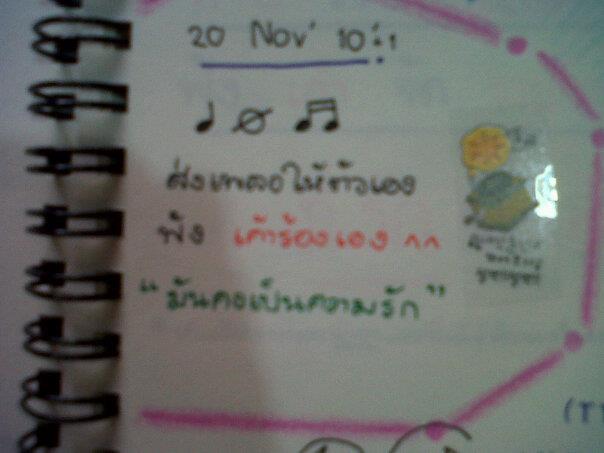 20 Nov' 10
ส่งเพลงให้ตัวเอง
ฟัง เค้าร้องเอง ^^
"มันคงเป็นความรัก"
(TT